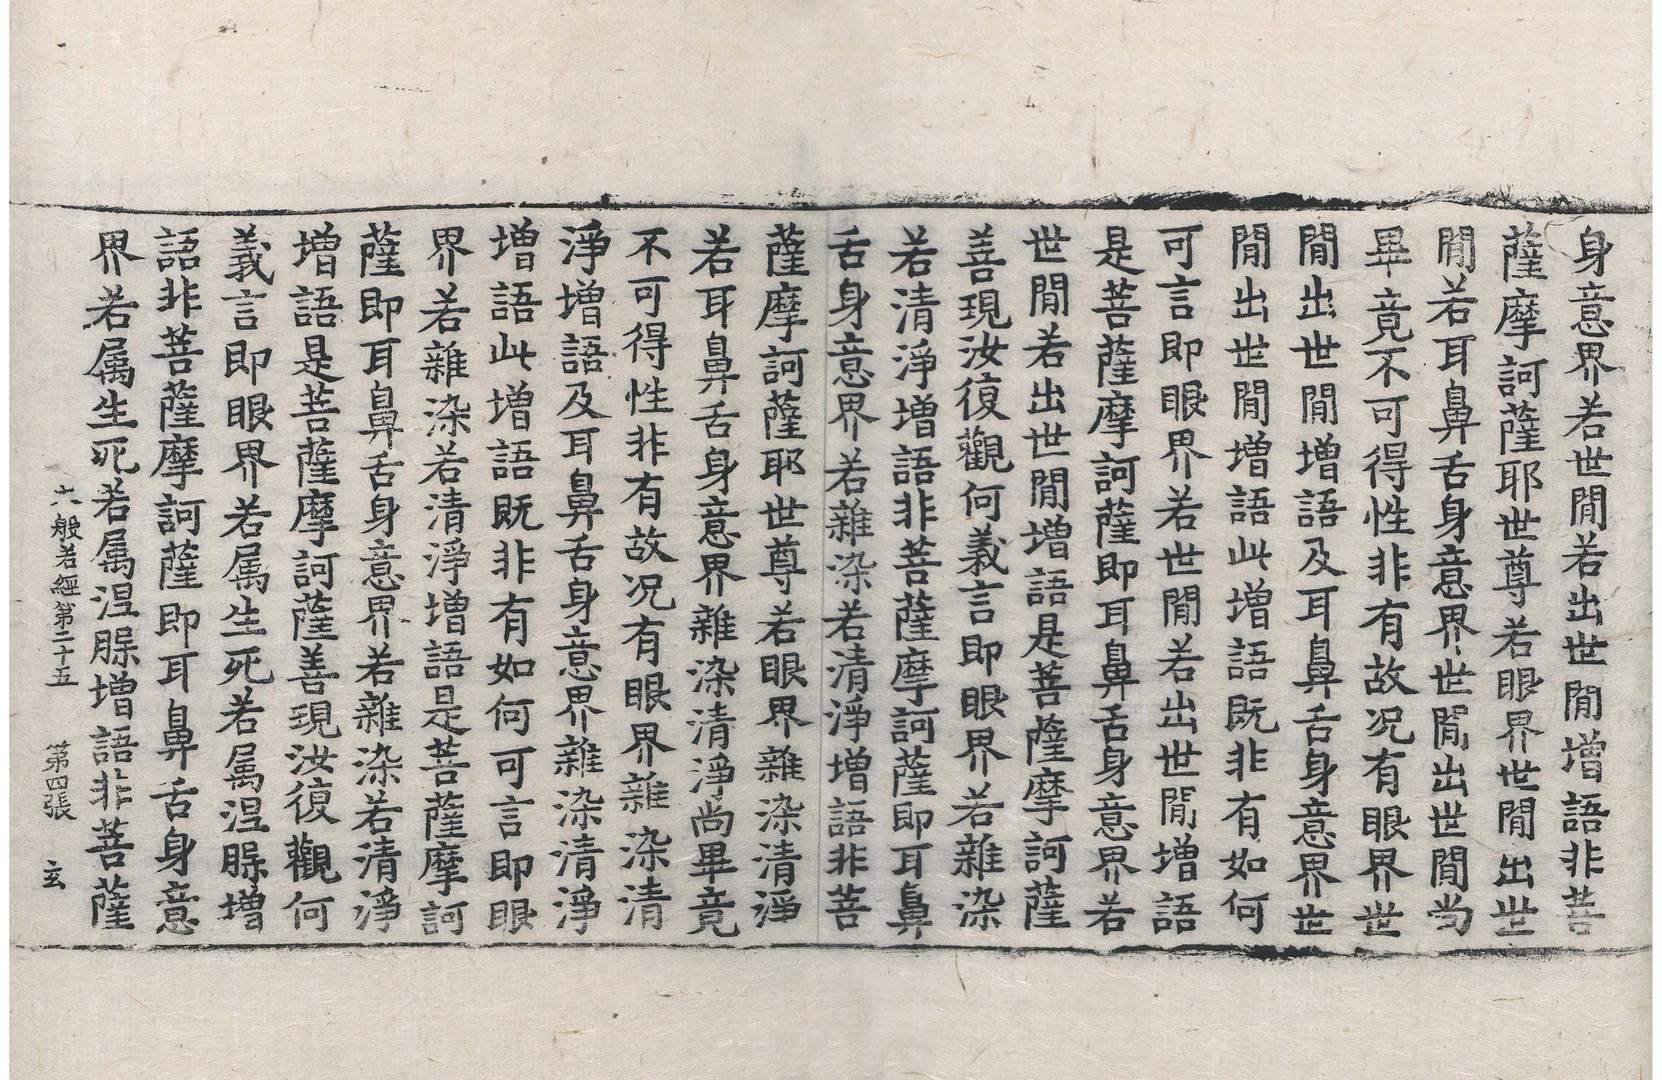 身意界若世閒若出世閒增語非菩
薩摩訶薩耶世尊若眼界世閒出世
閒若耳鼻舌身意界世閒出世閒尚
畢竟不可得性非有故况有眼界世
閒出世閒增語及耳鼻舌身意界世
閒出世閒增語此增語旣非有如何
可言即眼界若世閒若出世閒增語
是菩薩摩訶薩即耳鼻舌身意界若
世閒若出世閒增語是菩薩摩訶薩
善現汝復觀何義言即眼界若雜染
若清淨增語非菩薩摩訶薩即耳鼻
舌身意界若雜染若清淨增語非菩
薩摩訶薩耶世尊若眼界雜染清淨
若耳鼻舌身意界雜染清淨尚畢竟
不可得性非有故况有眼界雜染清
淨增語及耳鼻舌身意界雜染清淨
增語此增語旣非有如何可言即眼
界若雜染若清淨增語是菩薩摩訶
薩即耳鼻舌身意界若雜染若清淨
增語是菩薩摩訶薩善現汝復觀何
義言即眼界若属生死若属涅槃增
語非菩薩摩訶薩即耳鼻舌身意
界若属生死若属涅槃增語非菩薩
大般若經第二十五 第四張 玄